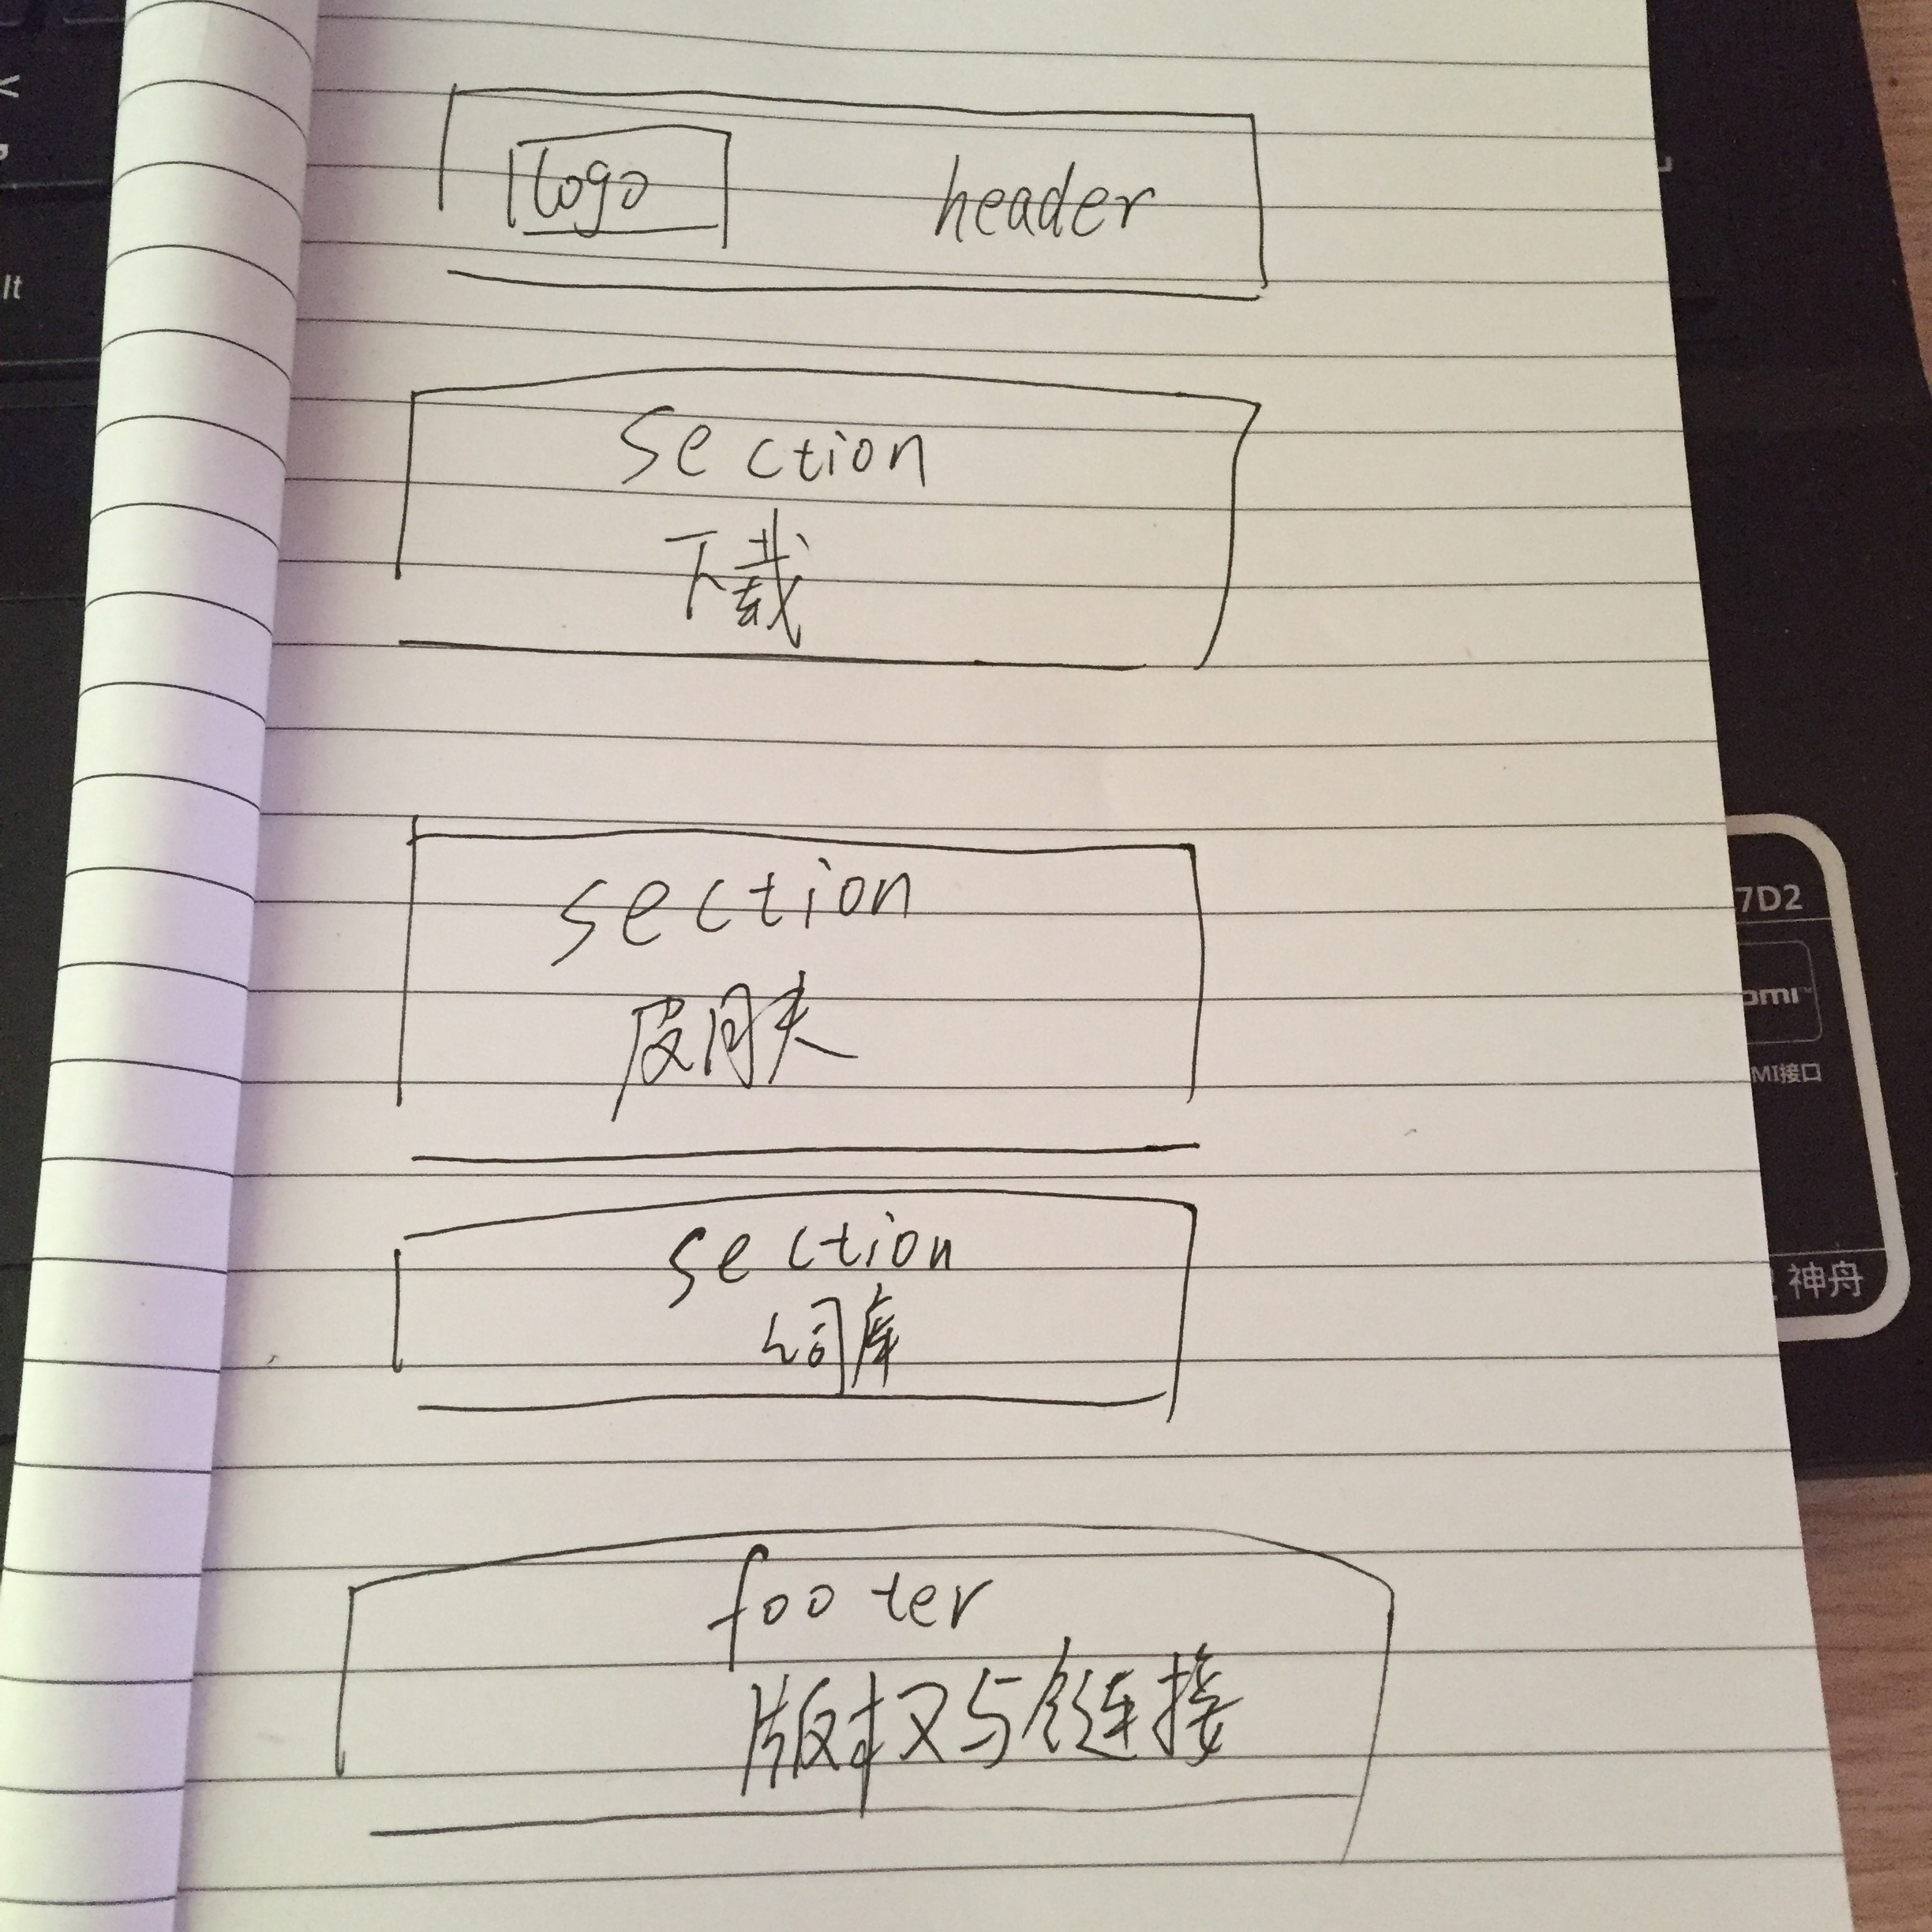 logo header
section
下载
section
皮肤
section
词库
footer
版权与链接
7D2
MI接口
神舟
lt